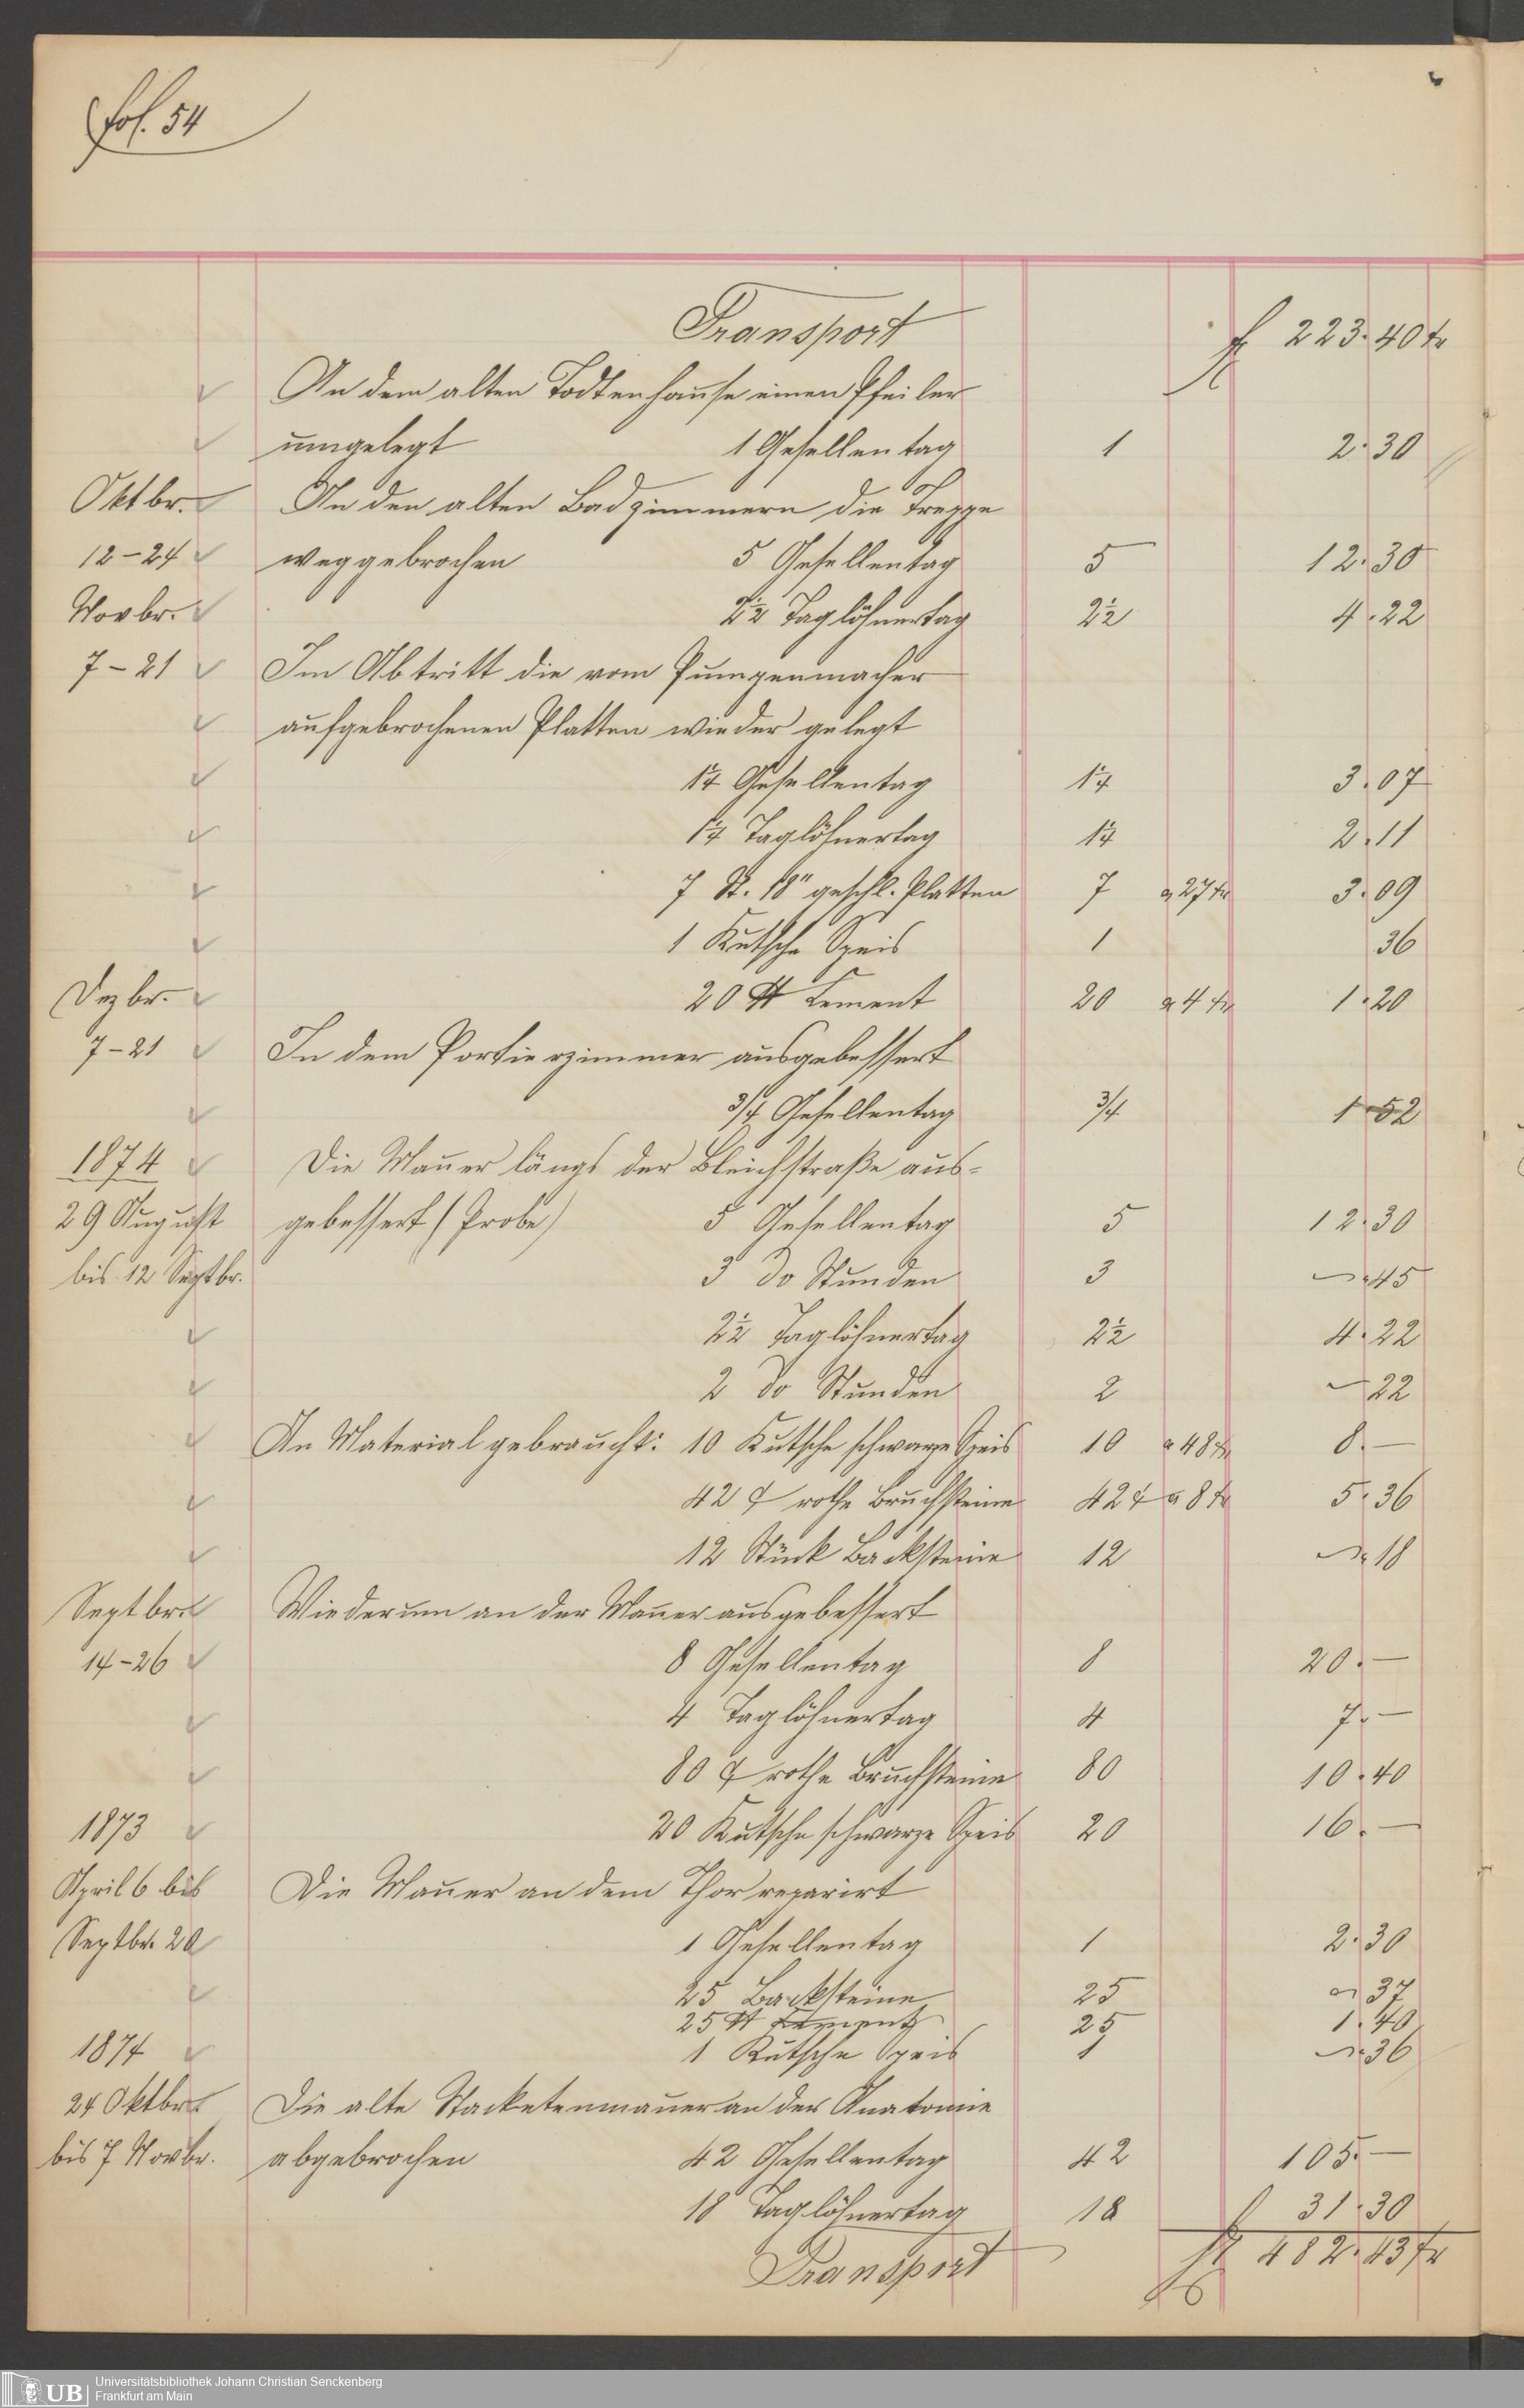 fol. 54
Transport f 223. 40 kr
An dem alten Todtenhause einen Pfeiler
umgelegt 1 Gesellentag 1 2. 30
Oktbr. An den alten Badzimmern die Treppe
12-24 weggebrochen 5 Gesellentag 5 12. 30
Novbr. 2½ Taglöhnertag 2½ 4. 22
7-21 Im Abtritt die vom Pumpenmacher
aufgebrochenen Platten wieder gelegt
1¼ Gesellentag 1¼ 3. 07
1¼ Taglöhnertag 1¼ 2. 11
7 St. 18" geschl. Platten 7 a 27 kr 3. 09
1 Kutsche Speis 1 36
20 ℔ Cement 20 a 4 kr 1. 20
Dezbr.
7-21 In dem Portierzimmer ausgebessert
¾ Gesellentag ¾ 1. 52
1874 Die Mauer längs der Bleichstraße aus-
29 August gebessert (Probe) 5 Gesellentag 5 12. 30
bis 12 Septbr. 3 do Stunden 3 — 45
2½ Taglöhnertag 2½ 4. 22
2 do Stunden 2 — 22
An Material gebraucht: 10 Kutsche schwarze Speis 10 a 48 kr 8. —
42 rothe Bruchsteine 42 a 8 kr 5. 36
12 Stück Backsteine 12 — 18
Septbr. Wiederum an der Mauer ausgebessert
14-26 8 Gesellentag 8 20. —
4 Taglöhnertag 4 7. —
80 rothe Bruchsteine 80 10. 40
1873 20 Kutsche schwarze Speis 20 16. —
April 6 bis Die Mauer an dem Thor reparirt
Septbr. 20 1 Gesellentag 1 2. 30
25 Backsteine 25 — 37
25 ℔ Cement 25 1. 40
1874 1 Kutsche Speis 1 — 36
24 Oktbr. Die alte Stacketenmauer an der Anatomie
bis 7 Novbr. abgebrochen 42 Gesellentag 42 105. —
18 Taglöhnertag 18 31. 30
Transport f 482. 43 kr
UB Universitätsbibliothek Johann Christian Senckenberg
Frankfurt am Main